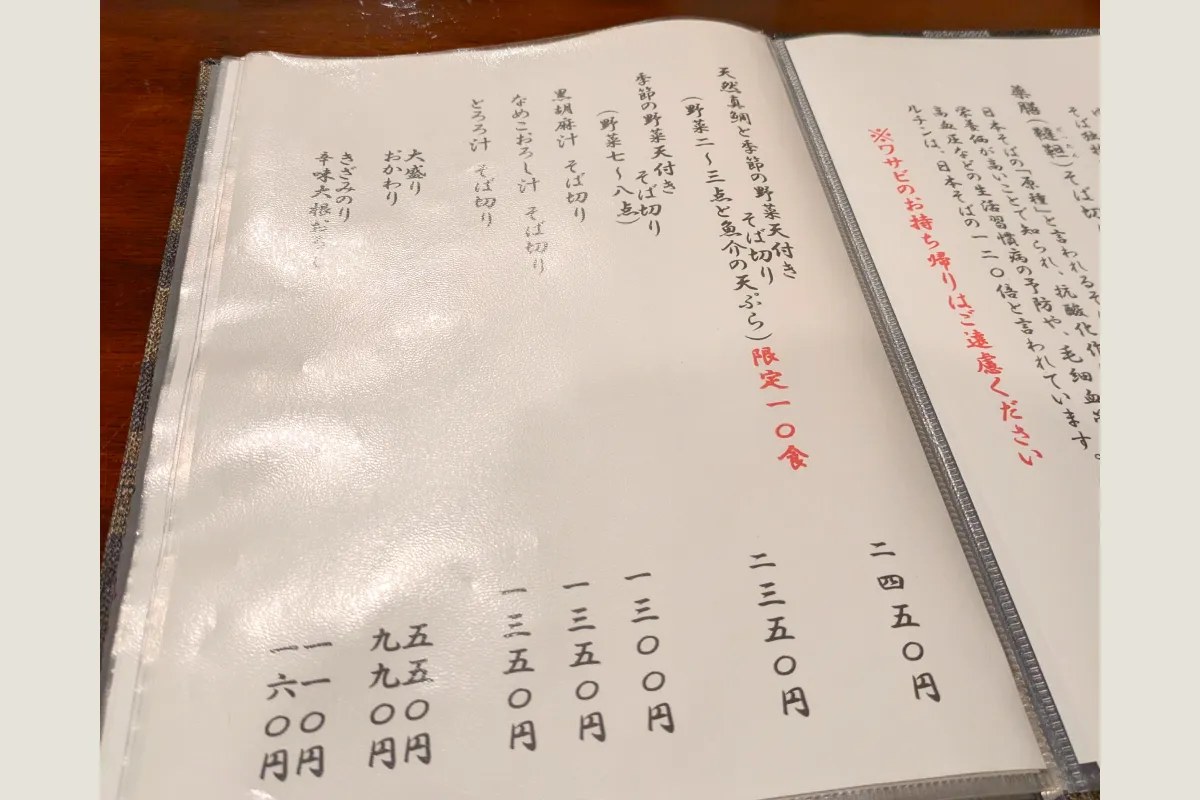 薬膳(韃靼)そば切
日本そばの「原種」と言われるそ
栄養価が高いことで知られ、抗酸化作
高血圧などの生活習慣病の予防や、毛細血
ルチンは、日本そばの一二〇倍と言われています。
※ワサビのお持ち帰りはご遠慮ください
天然真鯛と季節の野菜天付き
そば切り 二四五〇円
(野菜二～三点と魚介の天ぷら)限定一〇食
季節の野菜天付き
そば切り 二三五〇円
(野菜七～八点)
黒胡麻汁 そば切り 一三〇〇円
なめこおろし汁 そば切り 一三五〇円
とろろ汁 そば切り 一三五〇円
大盛り 五五〇円
おかわり 九九〇円
きざみのり 一一〇円
辛味大根おろし 一六〇円